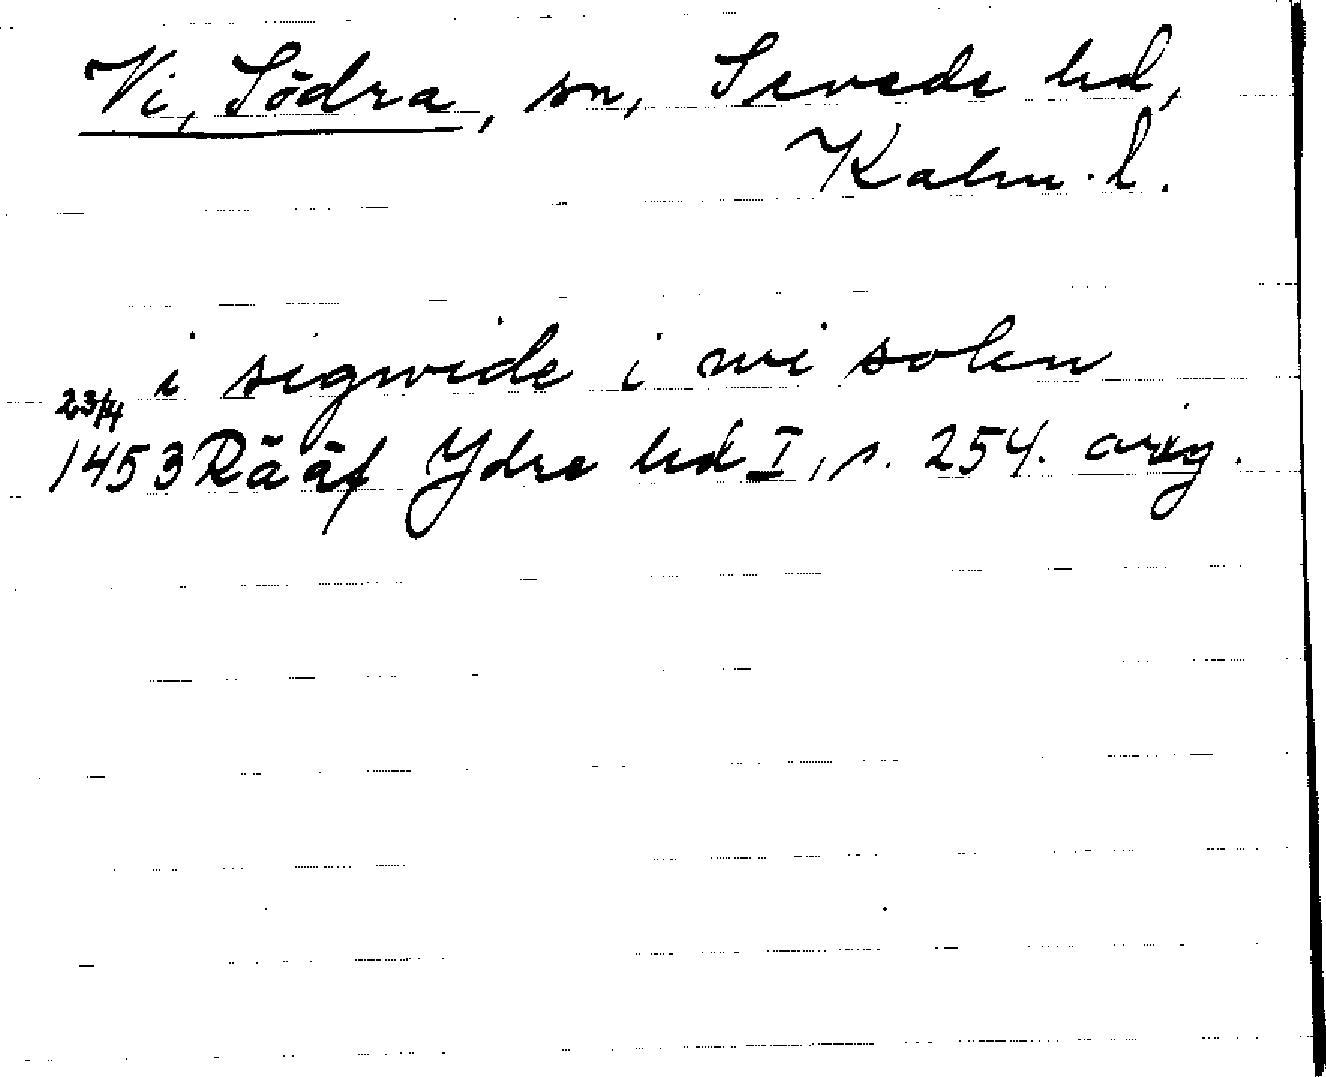 Vi, Södra, sn, Sevede hd,
Kalm. l.
i sigwide i wi sokn
23/4
1453 Rääf Ydre hd I, s. 254. orig.